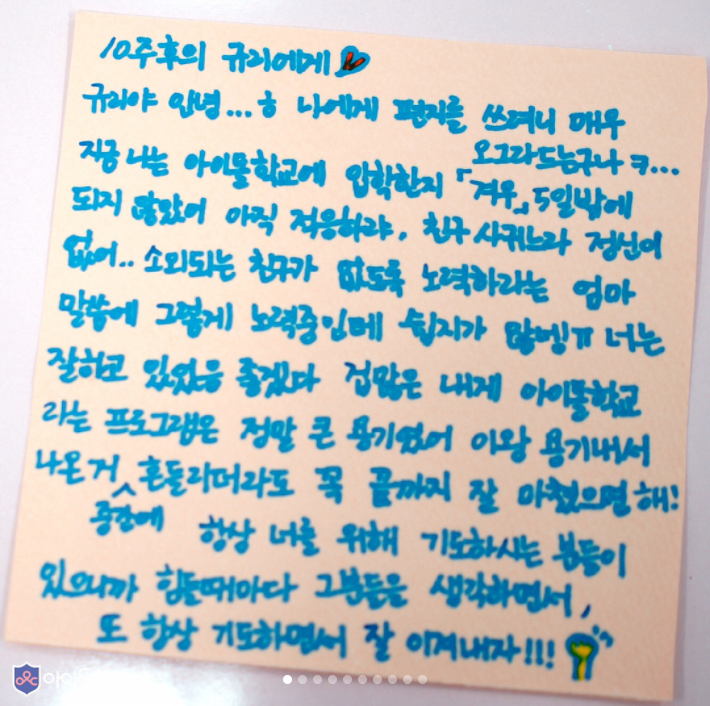 10주후의 규리에게
규리야 안녕...ㅎ 나에게 편지를 쓰려니 매우
오그라드는구나 ㅋ...
지금 나는 아이돌학교에 입학한지 「겨우」 5일밖에
되지 않았어 아직 적응하랴, 친구 사귀느라 정신이
없어.. 소외되는 친구가 없도록 노력하라는 엄마
말씀에 그렇게 노력중인데 쉽지가 않넹ㅠ 너는
잘하고 있었음 좋겠다 겁많은 내게 아이돌학교
라는 프로그램은 정말 큰 용기였어 이왕 용기내서
나온거 흔들리더라도 꼭 끝까지 잘 마쳤으면 해!
중간에
항상 너를 위해 기도하시는 분들이
있으니까 힘들때마다 그분들을 생각하면서,
또 항상 기도하면서 잘 이겨내자!!!